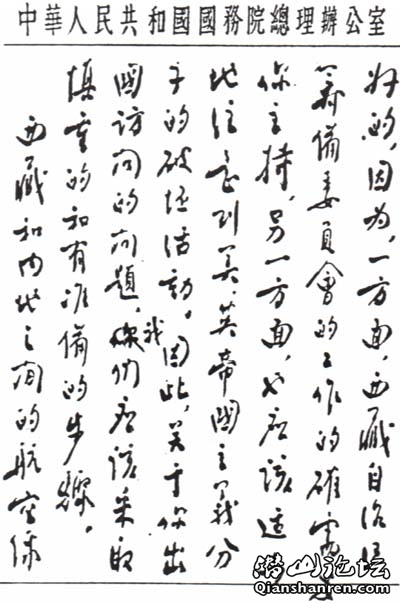 中華人民共和國國務院總理辦公室
好的，因为，一方面，西藏自治區
筹備委員會的工作的確需
你主持，另一方面，也应該适
地注意到美、英帝國主義分
子的破坏活動。因此，关于你出
國訪问的问題，我们应該采取
慎重的和有准備的步驟。
西藏和内地之间的航空線
潜山论坛
Qianshanren.com